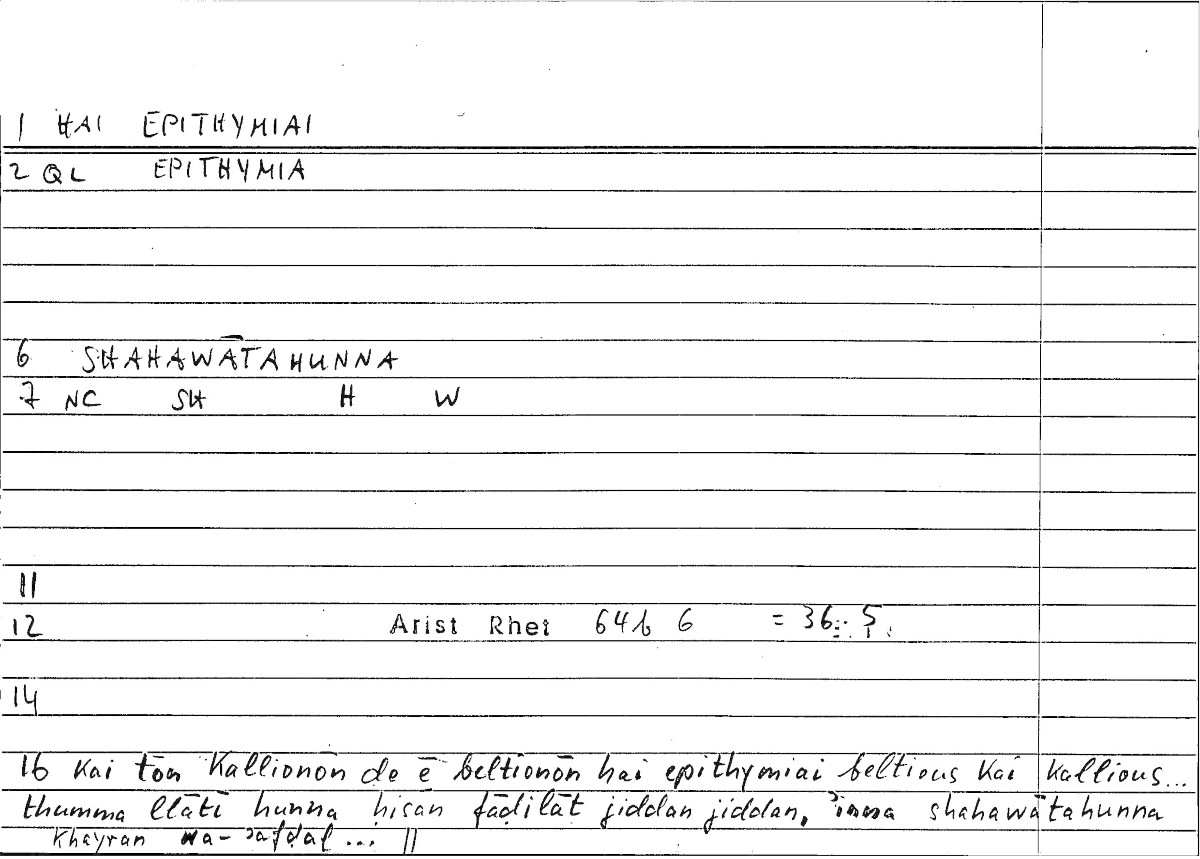 1 HAI EPITHYMIAI
2 QL EPITHYMIA
6 SHAHAWĀTAHUNNA
7 NC SH H W
11
12 Arist Rhet 64b 6 = 36: 5
14
16 Kai tōn Kallionōn de ē beltionōn hai epithymiai beltious Kai Kallious...
thumma llātī hunna ḥisān fāḍilāt jiddan jiddan, ʾinna shahawātahunna
Khayran wa-ʾafḍal ... ||